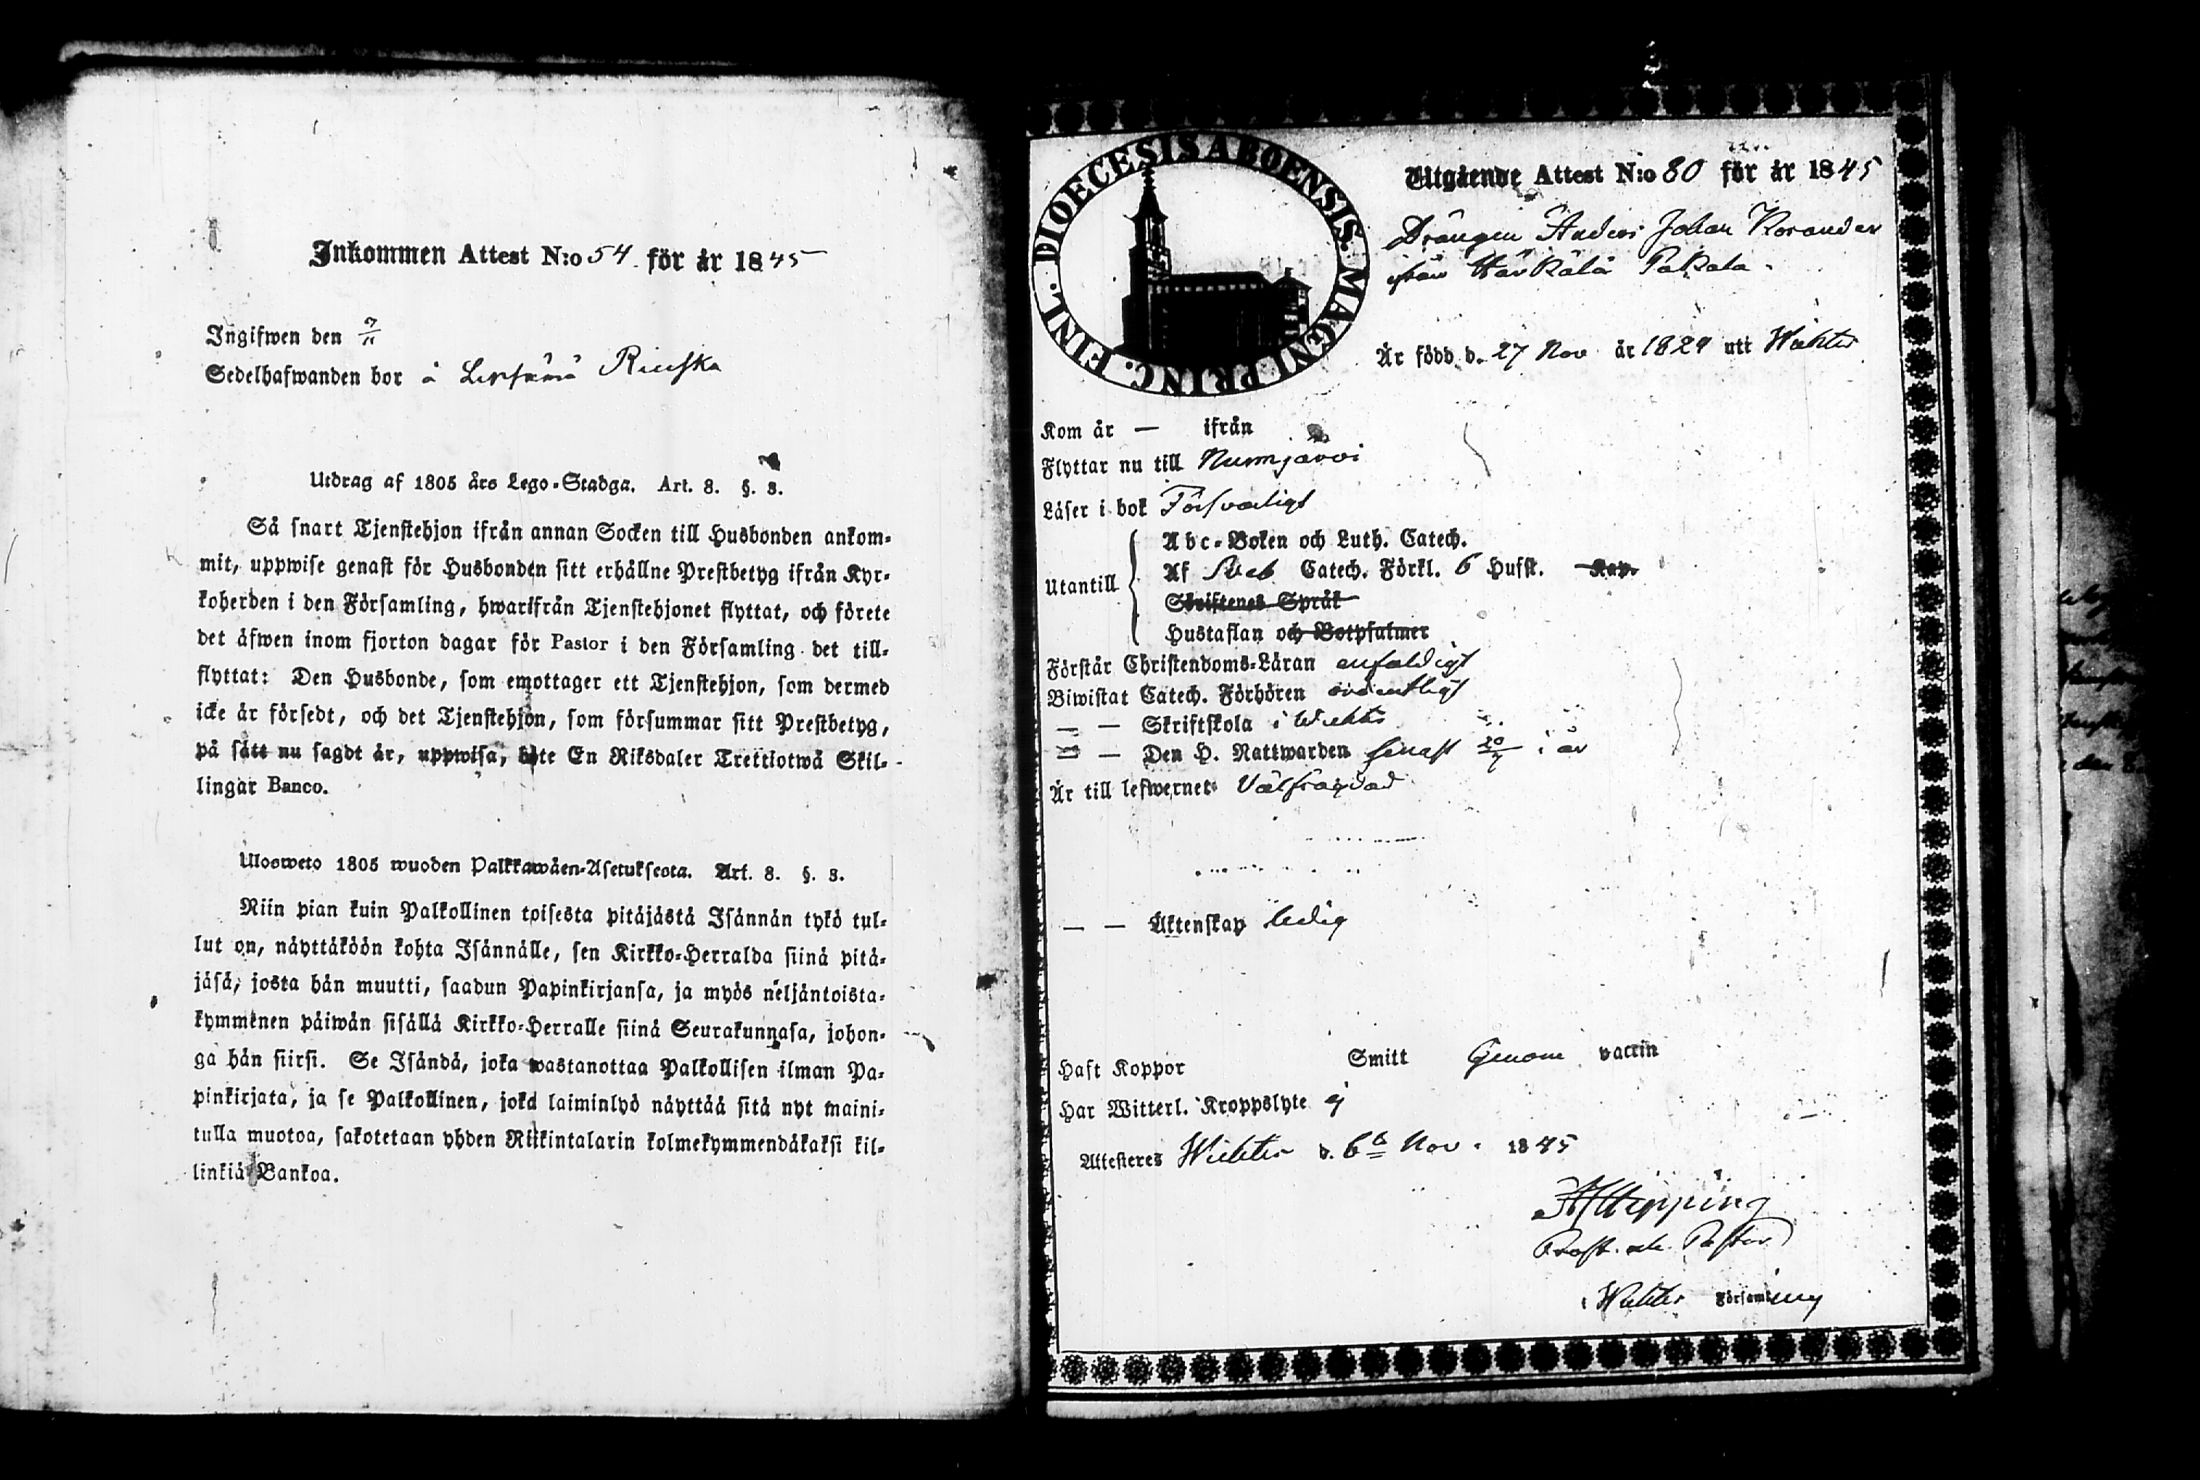 Inkommen Attest N:o 54. för år 1845
Ingifwen den 7/11
Sedelhafwanden bor å Lepsämä
Utdrag af 1805 års Lego-Stadga. Art. 8. §. 3.
Så snart Tjenstehjon ifrån annan Socken till Husbonden ankom-
mit, uppwise genast för Husbonden sitt erhållne Prestbetyg ifrån Kyr-
koherden i den Församling, hwarifrån Tjenstehjonet flyttat, och förete
det äfwen inom fjorton dagar för Pastor i den Församling det till-
flyttat: Den Husbonde, som emottager ett Tjenstehjon, som dermed
icke är försedt, och det Tjenstehjon, som försummar sitt Prestbetyg,
på sätt nu sagdt är, uppwisa, böte En Riksdaler Trettiotwå Skil-
lingar Banco.
Ulosweto 1805 wuoden Palkkawäen-Asetuksesta. Art. 8. §. 3.
Niin pian kuin Palkollinen toisesta pitäjästä Isännän tykö tul-
lut on, näyttäköön kohta Isännälle, sen Kirkko-Herralda siinä pitä-
jäsä, josta hän muutti, saadun Papinkirjansa, ja myös neljäntoista-
kymmenen päiwän sisällä Kirkko-Herralle siinä Seurakunnasa, johon-
ga hän siirsi. Se Isändä, joka wastanottaa Palkollisen ilman Pa-
pinkirjata, ja se Palkollinen, joka laiminlyö näyttää sitä nyt maini-
tulla muotoa, sakotetaan yhden Riikintalarin kolmekymmendäkaksi kil-
linkiä Bankoa.
DIOECESIS ABOENSIS. MAGNI PRINC. FINL.
Utgående Attest N:o 80 för år 1845
Drängen Anders Johan Korander
från Härkälä Pakala.
Är född d. 27 Nov år 1829 uti Wichtis
Kom år — ifrån
Flyttar nu till Nurmijärvi
Läser i bok Försvarligt
Utantill
Abc-Boken och Luth. Catech.
Af Sveb Catech. Förkl. 6 Hufst. Kap.
Skriftenes Språk
Hustaflan och Botpsalmer
Förstår Christendoms-Läran enfaldigt
Biwistat Catech. Förhören ordentligt
— — Skriftskola i Wichtis
— — Den H. Nattwarden senast 20/7 i år
Är till lefwernet Välfrägdad
— — Äktenskap ledig
Haft Koppor Smitt Genom vaccin
Har Witterl. Kroppslyte ej
Attesteres Wichtis d. 6te Nov. 1845
Hipping
Prost och Pastor
i Wichtis Församling